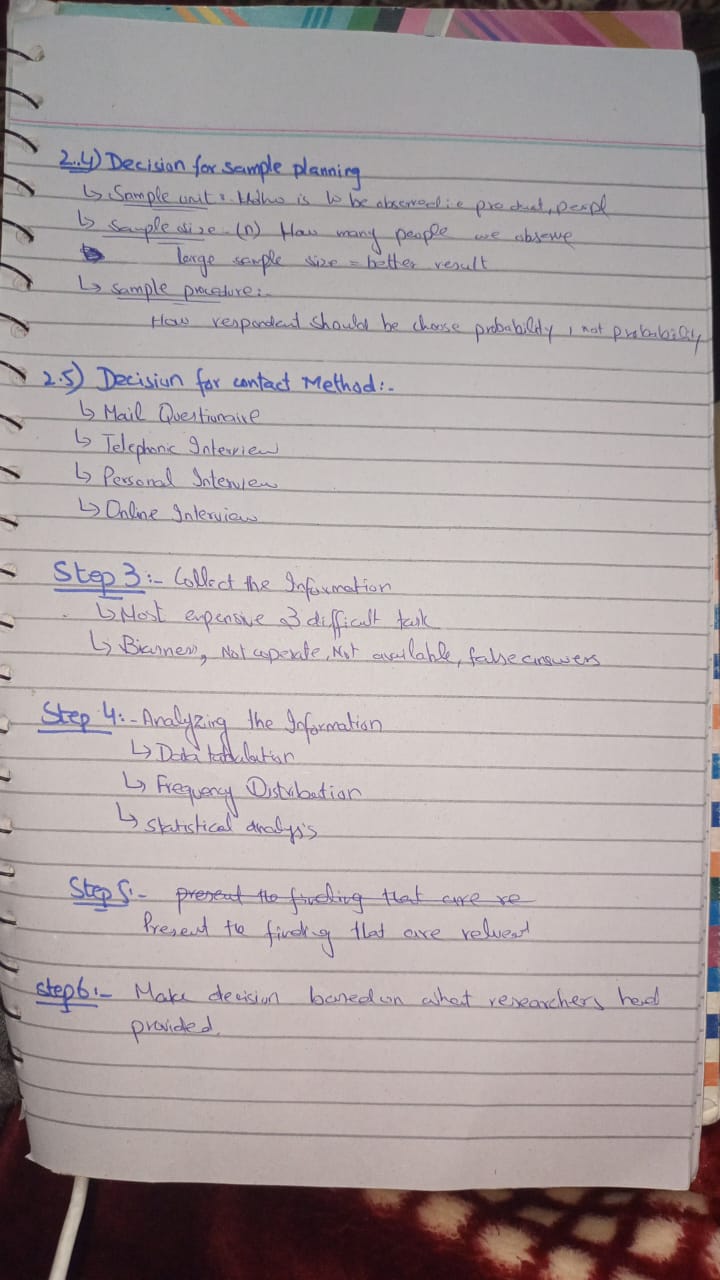 2.4) Decision for sample planning
↳ Sample unit: Who is to be observed i.e product, peopl
↳ Sample size (n) How many people we observe
large sample size = better result
↳ sample procedure:-
How respondent should be choose probability, not probability
2.5) Decision for contact Method:-
↳ Mail Questionaire
↳ Telephonic Interview
↳ Personal Interview
↳ Online Interview
Step 3:- Collect the Information
↳ Most expensive & difficult task
↳ Biasness, Not coperate, Not available, false answers
Step 4:- Analyzing the Information
↳ Data tabulation
↳ Frequency Distribution
↳ Statistical analysis
Step 5:- present the finding that are re
Present the finding that are relvent
Step6:- Make decision based on what researchers had
provided.